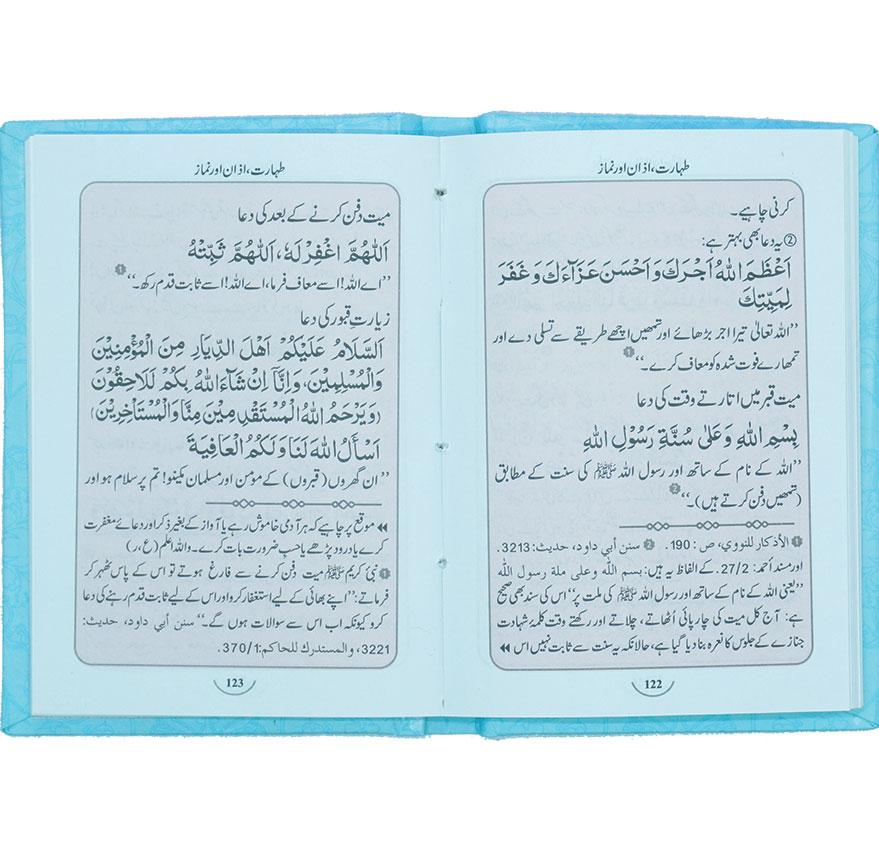 طہارت، اذان اور نماز
کرنی چاہیے۔
② یہ دعا بھی بہتر ہے:
اَعْظَمَ اللهُ اَجْرَكَ وَاَحْسَنَ عَزَآءَكَ وَغَفَرَ
لِمَيِّتِكَ
’’اللہ تعالیٰ تیرا اجر بڑھائے اور تمھیں اچھے طریقے سے تسلی دے اور
تمھارے فوت شدہ کو معاف کرے۔‘‘ ❶
میت قبر میں اتارتے وقت کی دعا
بِسْمِ اللهِ وَعَلٰى سُنَّةِ رَسُوْلِ اللهِ
’’اللہ کے نام کے ساتھ اور رسول اللہ ﷺ کی سنت کے مطابق
(تمھیں دفن کرتے ہیں)۔‘‘ ❷
❶ الأذكار للنووي، ص: 190. ❷ سنن أبي داود، حديث: 3213.
اور مسند أحمد: 27/2. کے الفاظ یہ ہیں: بسم الله وعلى ملة رسول الله
’’یعنی اللہ کے نام کے ساتھ اور رسول اللہ ﷺ کی ملت پر‘‘ اس کی سند بھی صحیح
ہے: آج کل میت کی چارپائی اُٹھاتے، چلاتے اور رکھتے وقت کلمۂ شہادت
جنازے کے جلوس کا نعرہ بنا دیا گیا ہے، حالانکہ یہ سنت سے ثابت نہیں اس ◀◀
122
طہارت، اذان اور نماز
میت دفن کرنے کے بعد کی دعا
اَللّٰهُمَّ اغْفِرْ لَهٗ، اَللّٰهُمَّ ثَبِّتْهُ
’’اے اللہ! اسے معاف فرما، اے اللہ! اسے ثابت قدم رکھ۔‘‘ ❶
زیارتِ قبور کی دعا
اَلسَّلَامُ عَلَيْكُمْ اَهْلَ الدِّيَارِ مِنَ الْمُؤْمِنِيْنَ
وَالْمُسْلِمِيْنَ، وَاِنَّآ اِنْ شَآءَ اللهُ بِكُمْ لَلَاحِقُوْنَ
(وَيَرْحَمُ اللهُ الْمُسْتَقْدِمِيْنَ مِنَّا وَالْمُسْتَاْخِرِيْنَ)
اَسْأَلُ اللهَ لَنَا وَلَكُمُ الْعَافِيَةَ
’’ان گھروں (قبروں) کے مؤمن اور مسلمان مکینو! تم پر سلام ہو اور
◀◀ موقع پر چاہیے کہ ہر آدمی خاموش رہے یا آواز کے بغیر ذکر اور دعائے مغفرت
کرے یا درود پڑھے یا حسبِ ضرورت بات کرے۔ واللہ اعلم (ع، ر)
❶ نبیٔ کریم ﷺ میت دفن کرنے سے فارغ ہوتے تو اس کے پاس ٹھہر کر
فرماتے: ’’اپنے بھائی کے لیے استغفار کرو اور اس کے لیے ثابت قدم رہنے کی دعا
کرو کیونکہ اب اس سے سوالات ہوں گے۔‘‘ سنن أبي داود، حديث:
3221، والمستدرك للحاكم: 370/1.
123